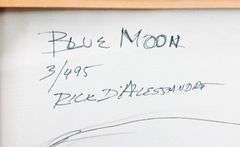 Blue Moon
3/495
Rick D'Alessandro